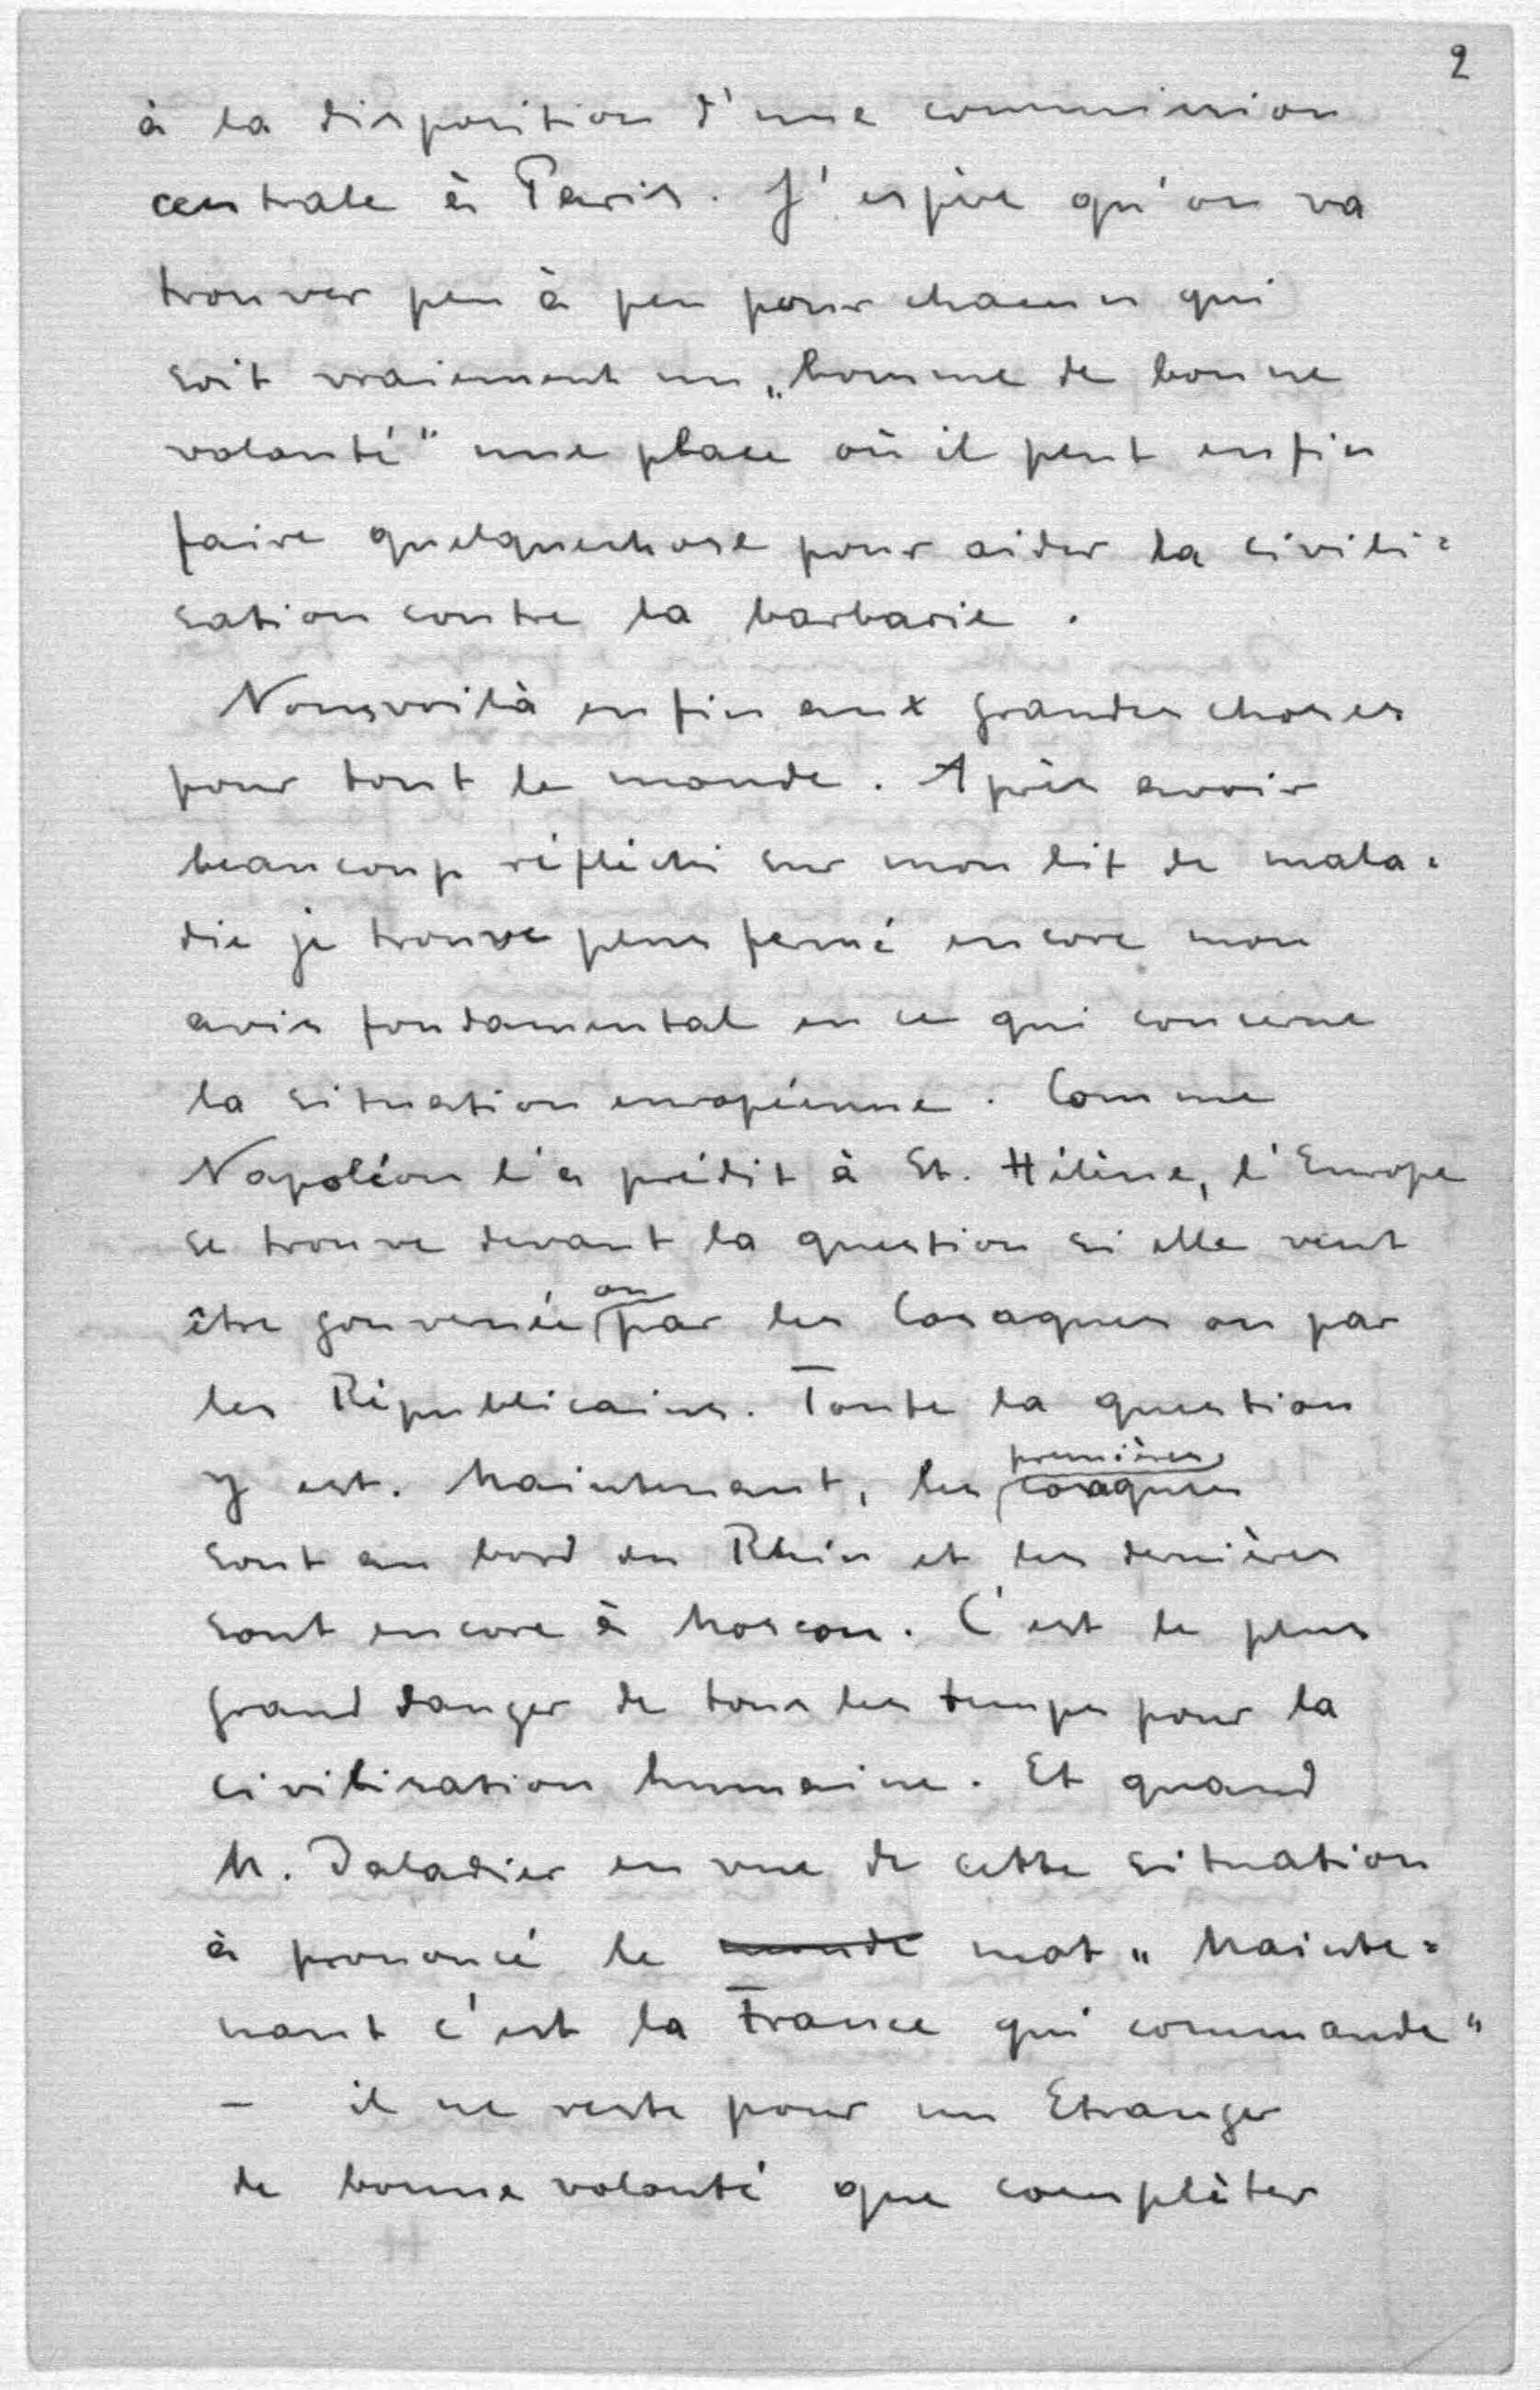 2
à la disposition d'une commission
centrale à Paris. J'espère qu'on va
trouver peu à peu pour chacun qui
soit vraiement un „homme de bonne
volonté" une place où il peut enfin
faire quelquechose pour aider la civili=
sation contre la barbarie.
Nous voilà enfin aux grandes choses
pour tout le monde. Après avoir
beaucoup réfléchi sur mon lit de mala=
die je trouve plus fermé encore mon
avis fondamental en ce qui concerne
la situation européenne. Comme
Napoléon l'a prédit à St. Hélène, l'Europe
se trouve devant la question si elle veut
être gouvernée ou par les Cosaques ou par
les Républicains. Toute la question
y est. Maintenant, les premières cosaques
sont au bord du Rhin et les dernières
sont encore à Moscou. C'est le plus
grand danger de tous les temps pour la
civilisation humaine. Et quand
M. Daladier en vue de cette situation
à prononcé le monde mot „Mainte=
nant c'est la France qui commande"
– il ne reste pour un Etranger
de bonne volonté que complèter